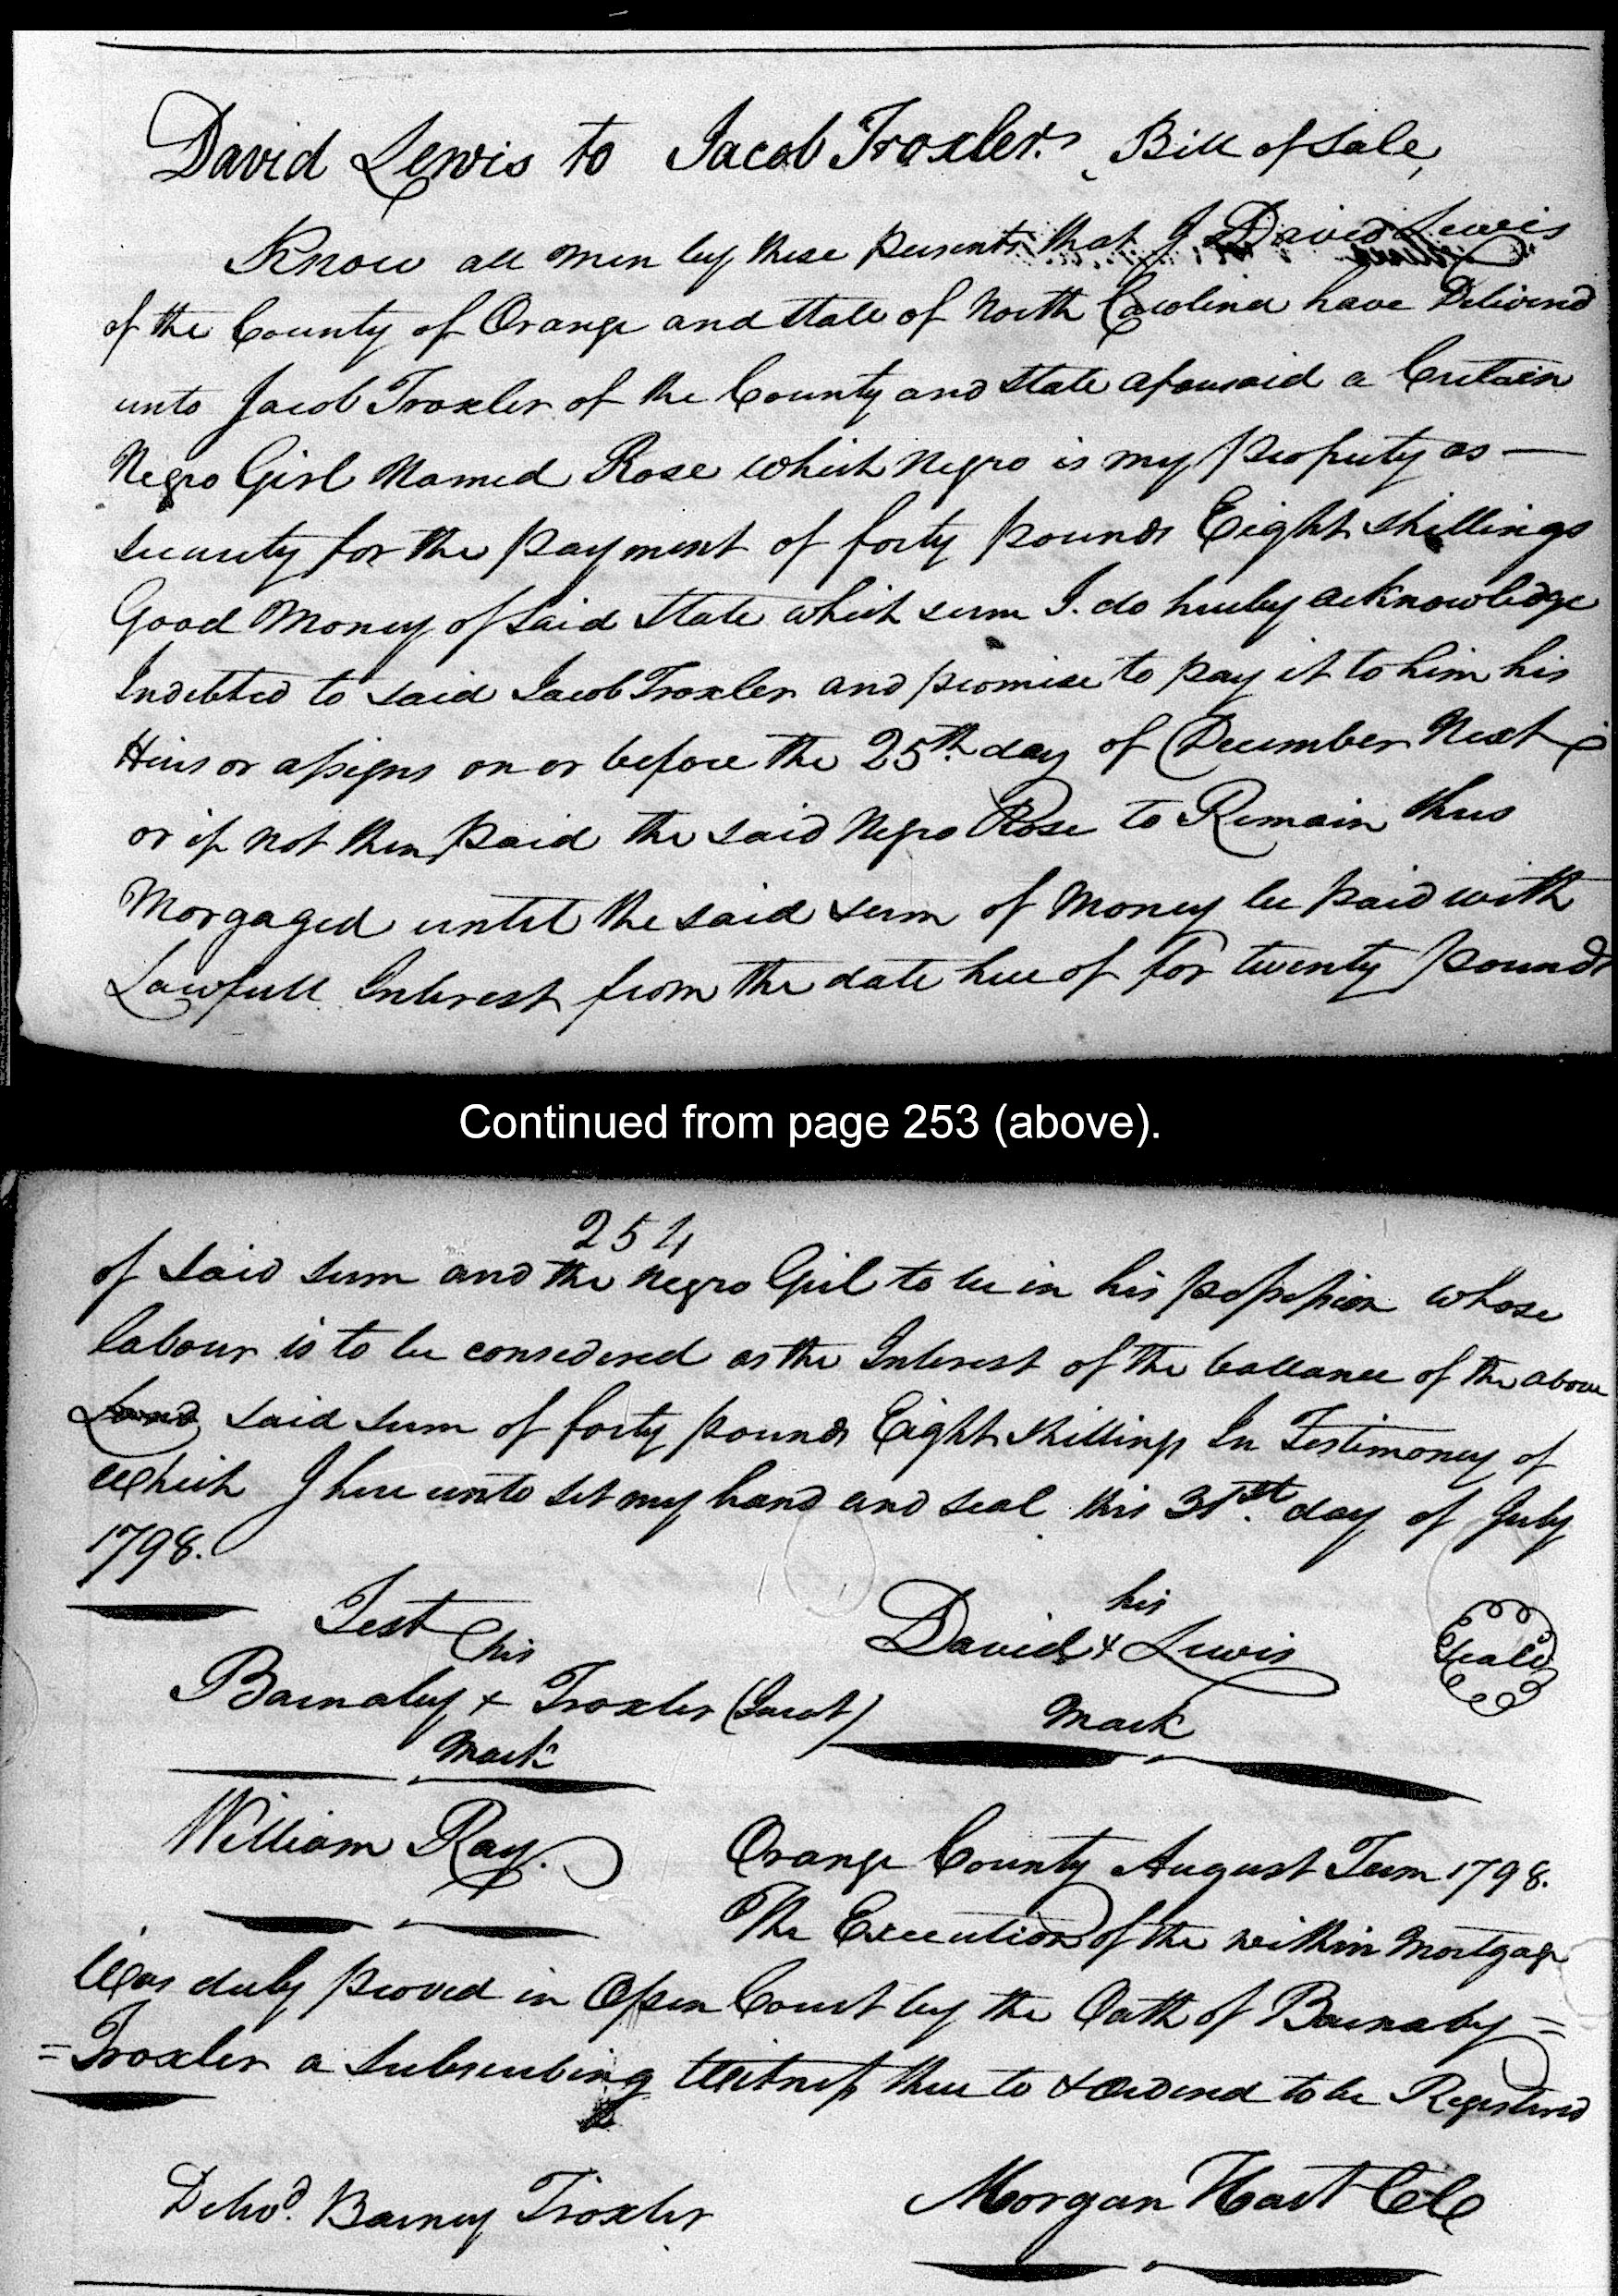 David Lewis to Jacob Troxler. Bill of Sale,
Know all men by these presents that I David Lewis
of the County of Orange and State of North Carolina have Delivered
unto Jacob Troxler of the County and State aforesaid a Certain
Negro Girl Named Rose which Negro is my property as —
security for the payment of forty pounds Eight Shillings
Good Money of Said State which sum I do hereby acknowledge
Indebted to said Jacob Troxler and promise to pay it to him his
Heirs or assigns on or before the 25th. day of December Next
or if not then paid the said Negro Rose to Remain thus
Morgaged untill the said sum of Money be paid with
Lawfull Interest from the date hereof for twenty pounds
Continued from page 253 (above).
254
of said sum and the Negro Girl to be in his possession whose
labour is to be considered as the Interest of the ballance of the above
said sum of forty pounds Eight Shillings In Testimoney of
which I here unto set my hand and seal this 31st. day of July
1798.
Test
his
Barnaby + Troxler (Jurat)
mark
his
David + Lewis
mark
Seal
William Ray.
Orange County August Term 1798.
The Execution of the within Mortgage
Was duly proved in Open Court by the Oath of Barnaby =
= Troxler a Subscribing Witness there to & Ordered to be Registered
Morgan Hart CC
Delivd. Barney Troxler